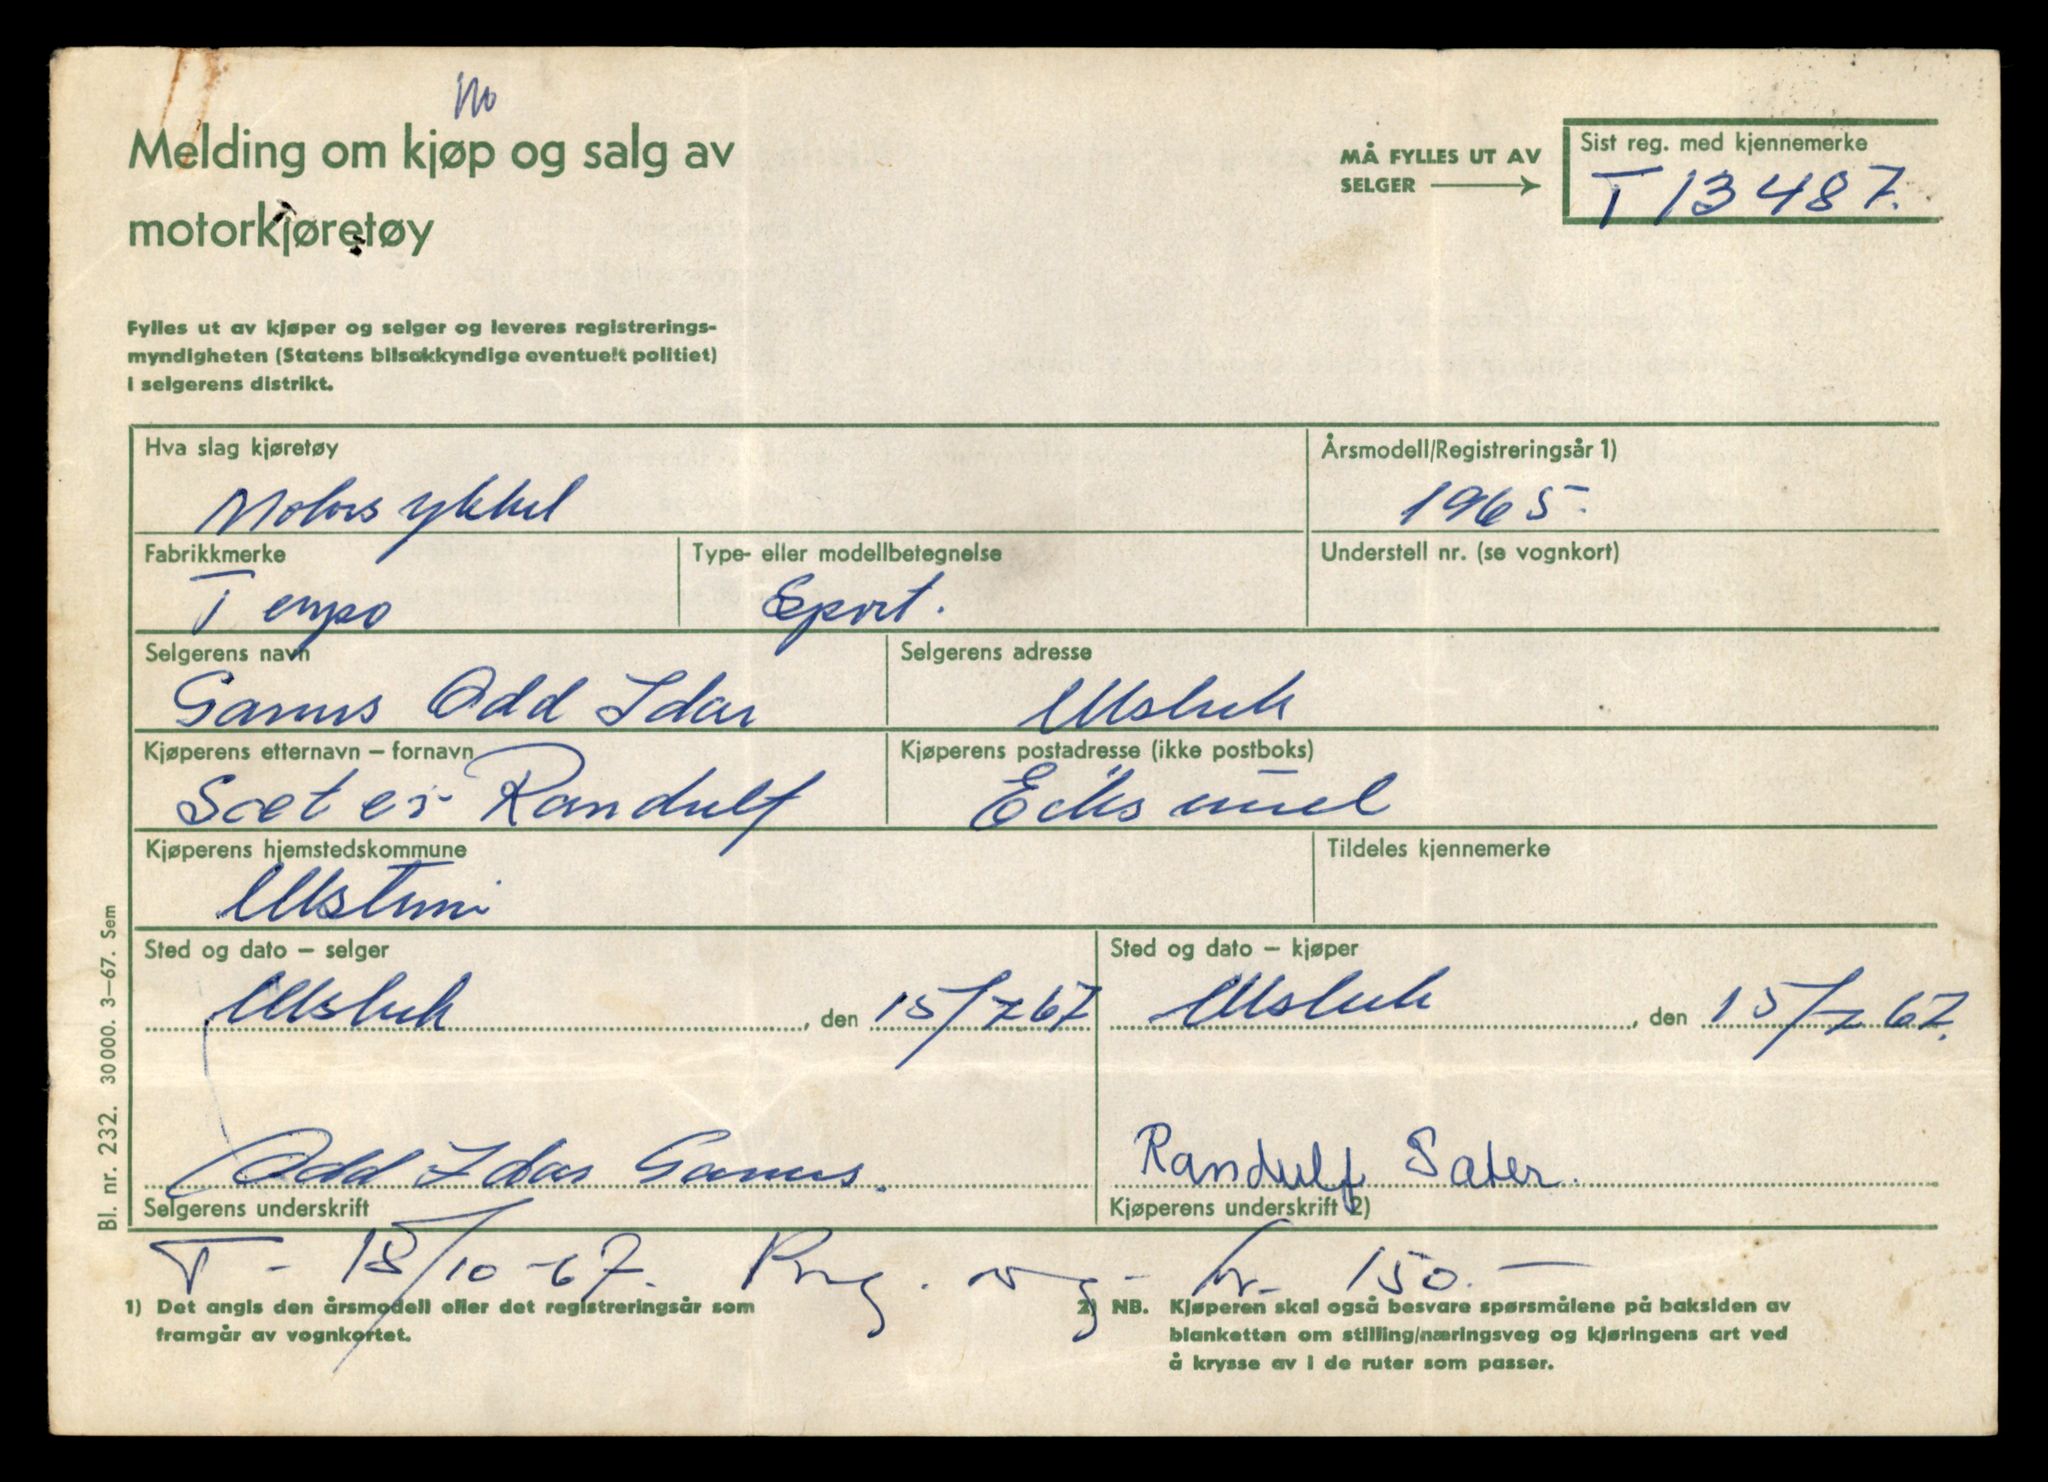 Melding om kjøp og salg av
motorkjøretøy
MÅ FYLLES UT AV
SELGER
Sist reg. med kjennemerke
T 13487.
Fylles ut av kjøper og selger og leveres registrerings-
myndigheten (Statens bilsakkyndige eventuelt politiet)
i selgerens distrikt.
Hva slag kjøretøy
Motorsykkel
Årsmodell/Registreringsår 1)
1965.
Fabrikkmerke
Tempo
Type- eller modellbetegnelse
Sport.
Understell nr. (se vognkort)
Selgerens navn
Odd Idar
Selgerens adresse
Kjøperens etternavn – fornavn
Sæter Randulf
Kjøperens postadresse (ikke postboks)
Kjøperens hjemstedskommune
Tildeles kjennemerke
Sted og dato – selger
, den 15/7 67
Sted og dato – kjøper
, den 15/7 67.
Odd Idar
Selgerens underskrift
Randulf Sæter.
Kjøperens underskrift 2)
T - 18/10-67. kr. 150.-
1) Det angis den årsmodell eller det registreringsår som
framgår av vognkortet.
2) NB. Kjøperen skal også besvare spørsmålene på baksiden av
blanketten om stilling/næringsveg og kjøringens art ved
å krysse av i de ruter som passer.
Bl. nr. 232. 30 000. 3–67. Sem